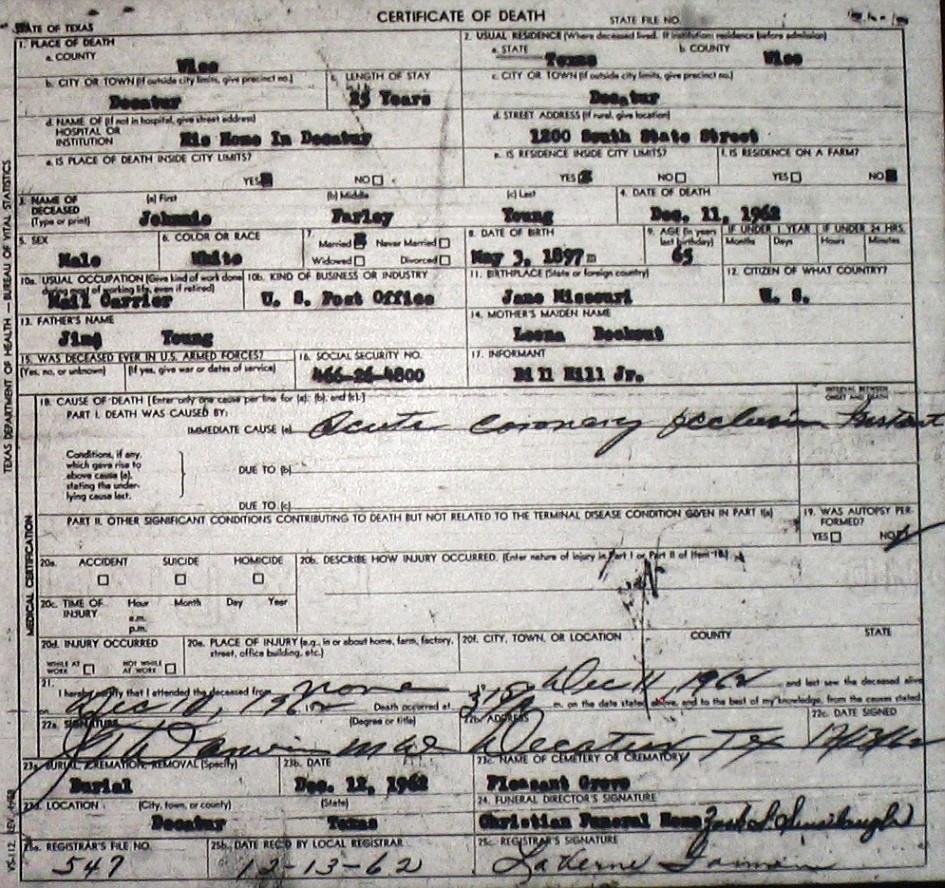 CERTIFICATE OF DEATH
STATE OF TEXAS
STATE FILE NO.
1. PLACE OF DEATH
a. COUNTY
Wise
2. USUAL RESIDENCE (Where deceased lived. If institution: residence before admission)
a. STATE
Texas
b. COUNTY
Wise
b. CITY OR TOWN (If outside city limits, give precinct no.)
Decatur
c. LENGTH OF STAY
25 Years
c. CITY OR TOWN (If outside city limits, give precinct no.)
Decatur
d. NAME OF (If not in hospital, give street address)
HOSPITAL OR
INSTITUTION
His Home In Decatur
d. STREET ADDRESS (If rural, give location)
1200 South State Street
e. IS PLACE OF DEATH INSIDE CITY LIMITS?
YES NO
e. IS RESIDENCE INSIDE CITY LIMITS?
YES NO
f. IS RESIDENCE ON A FARM?
YES NO
3. NAME OF
DECEASED
(Type or print)
(a) First
Johnnie
(b) Middle
Farley
(c) Last
Young
4. DATE OF DEATH
Dec. 11, 1962
5. SEX
Male
6. COLOR OR RACE
White
7.
Married Never Married
Widowed Divorced
8. DATE OF BIRTH
May 3, 1897
9. AGE (In years
last birthday)
65
IF UNDER 1 YEAR
Months Days
IF UNDER 24 HRS.
Hours Minutes
10a. USUAL OCCUPATION (Give kind of work done
during most of working life, even if retired)
Mail Carrier
10b. KIND OF BUSINESS OR INDUSTRY
U. S. Post Office
11. BIRTHPLACE (State or foreign country)
Jane Missouri
12. CITIZEN OF WHAT COUNTRY?
U. S.
13. FATHER'S NAME
Young
14. MOTHER'S MAIDEN NAME
Leona
15. WAS DECEASED EVER IN U.S. ARMED FORCES?
(Yes, no, or unknown) (If yes, give war or dates of service)
16. SOCIAL SECURITY NO.
466-26-4800
17. INFORMANT
Bill Hill Jr.
18. CAUSE OF DEATH [Enter only one cause per line for (a), (b), and (c).]
PART I. DEATH WAS CAUSED BY:
IMMEDIATE CAUSE (a) Acute coronary occlusion
INTERVAL BETWEEN
ONSET AND DEATH
Instant
Conditions, if any,
which gave rise to
above cause (a),
stating the under-
lying cause last.
DUE TO (b)
DUE TO (c)
PART II. OTHER SIGNIFICANT CONDITIONS CONTRIBUTING TO DEATH BUT NOT RELATED TO THE TERMINAL DISEASE CONDITION GIVEN IN PART I(a)
19. WAS AUTOPSY PER-
FORMED?
YES NO
20a. ACCIDENT SUICIDE HOMICIDE
20b. DESCRIBE HOW INJURY OCCURRED. (Enter nature of injury in Part I or Part II of Item 18.)
20c. TIME OF
INJURY
Hour Month Day Year
a.m.
p.m.
20d. INJURY OCCURRED
WHILE AT
WORK
NOT WHILE
AT WORK
20e. PLACE OF INJURY (e.g., in or about home, farm, factory,
street, office building, etc.)
20f. CITY, TOWN, OR LOCATION COUNTY STATE
21.
I hereby certify that I attended the deceased from none Dec 11, 1962 and last saw the deceased alive
on Dec 10, 1962 Death occurred at m. on the date stated above, and to the best of my knowledge, from the causes stated.
22a. SIGNATURE (Degree or title)
22b. ADDRESS
Decatur Tex
22c. DATE SIGNED
23a. BURIAL, CREMATION, REMOVAL (Specify)
Burial
23b. DATE
Dec. 12, 1962
23c. NAME OF CEMETERY OR CREMATORY
Pleasant Grove
23d. LOCATION (City, town, or county) (State)
Decatur Texas
24. FUNERAL DIRECTOR'S SIGNATURE
Christian Funeral Home
25a. REGISTRAR'S FILE NO.
547
25b. DATE REC'D BY LOCAL REGISTRAR
12-13-62
25c. REGISTRAR'S SIGNATURE
LaVerne
TEXAS DEPARTMENT OF HEALTH — BUREAU OF VITAL STATISTICS
MEDICAL CERTIFICATION